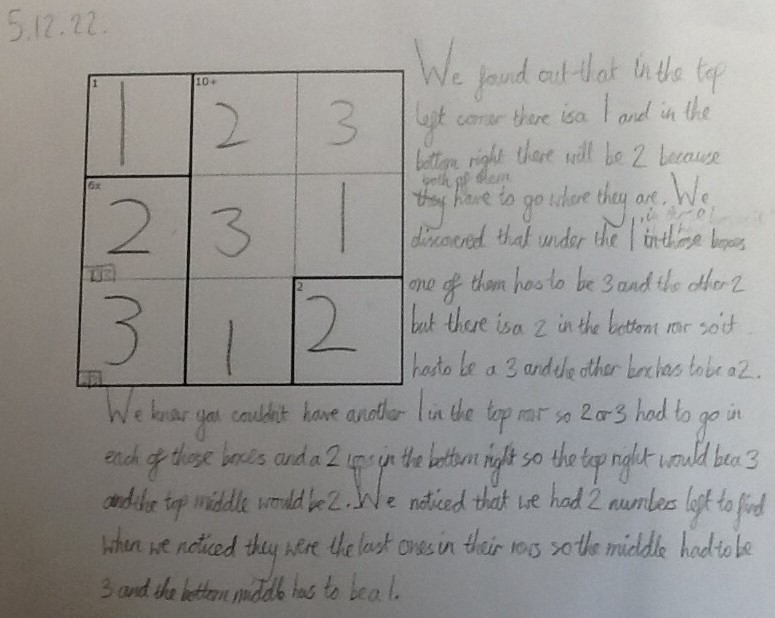 5.12.22.
We found out that in the top
left corner there is a 1 and in the
bottom right there will be 2 because
both of them
they have to go where they are. We
discovered that under the 1 in those boxes
one of them has to be 3 and the other 2
but there is a 2 in the bottom row so it
has to be a 3 and the other box has to be a 2.
1 10+
1 2 3
6x
2 3 1
2
3 1 2
We knew you couldn't have another 1 in the top row so 2 or 3 had to go in
each of those boxes and a 2 was in the bottom right so the top right would be a 3
and the top middle would be 2. We noticed that we had 2 numbers left to find
when we noticed they were the last ones in their rows so the middle had to be
3 and the bottom middle has to be a 1.